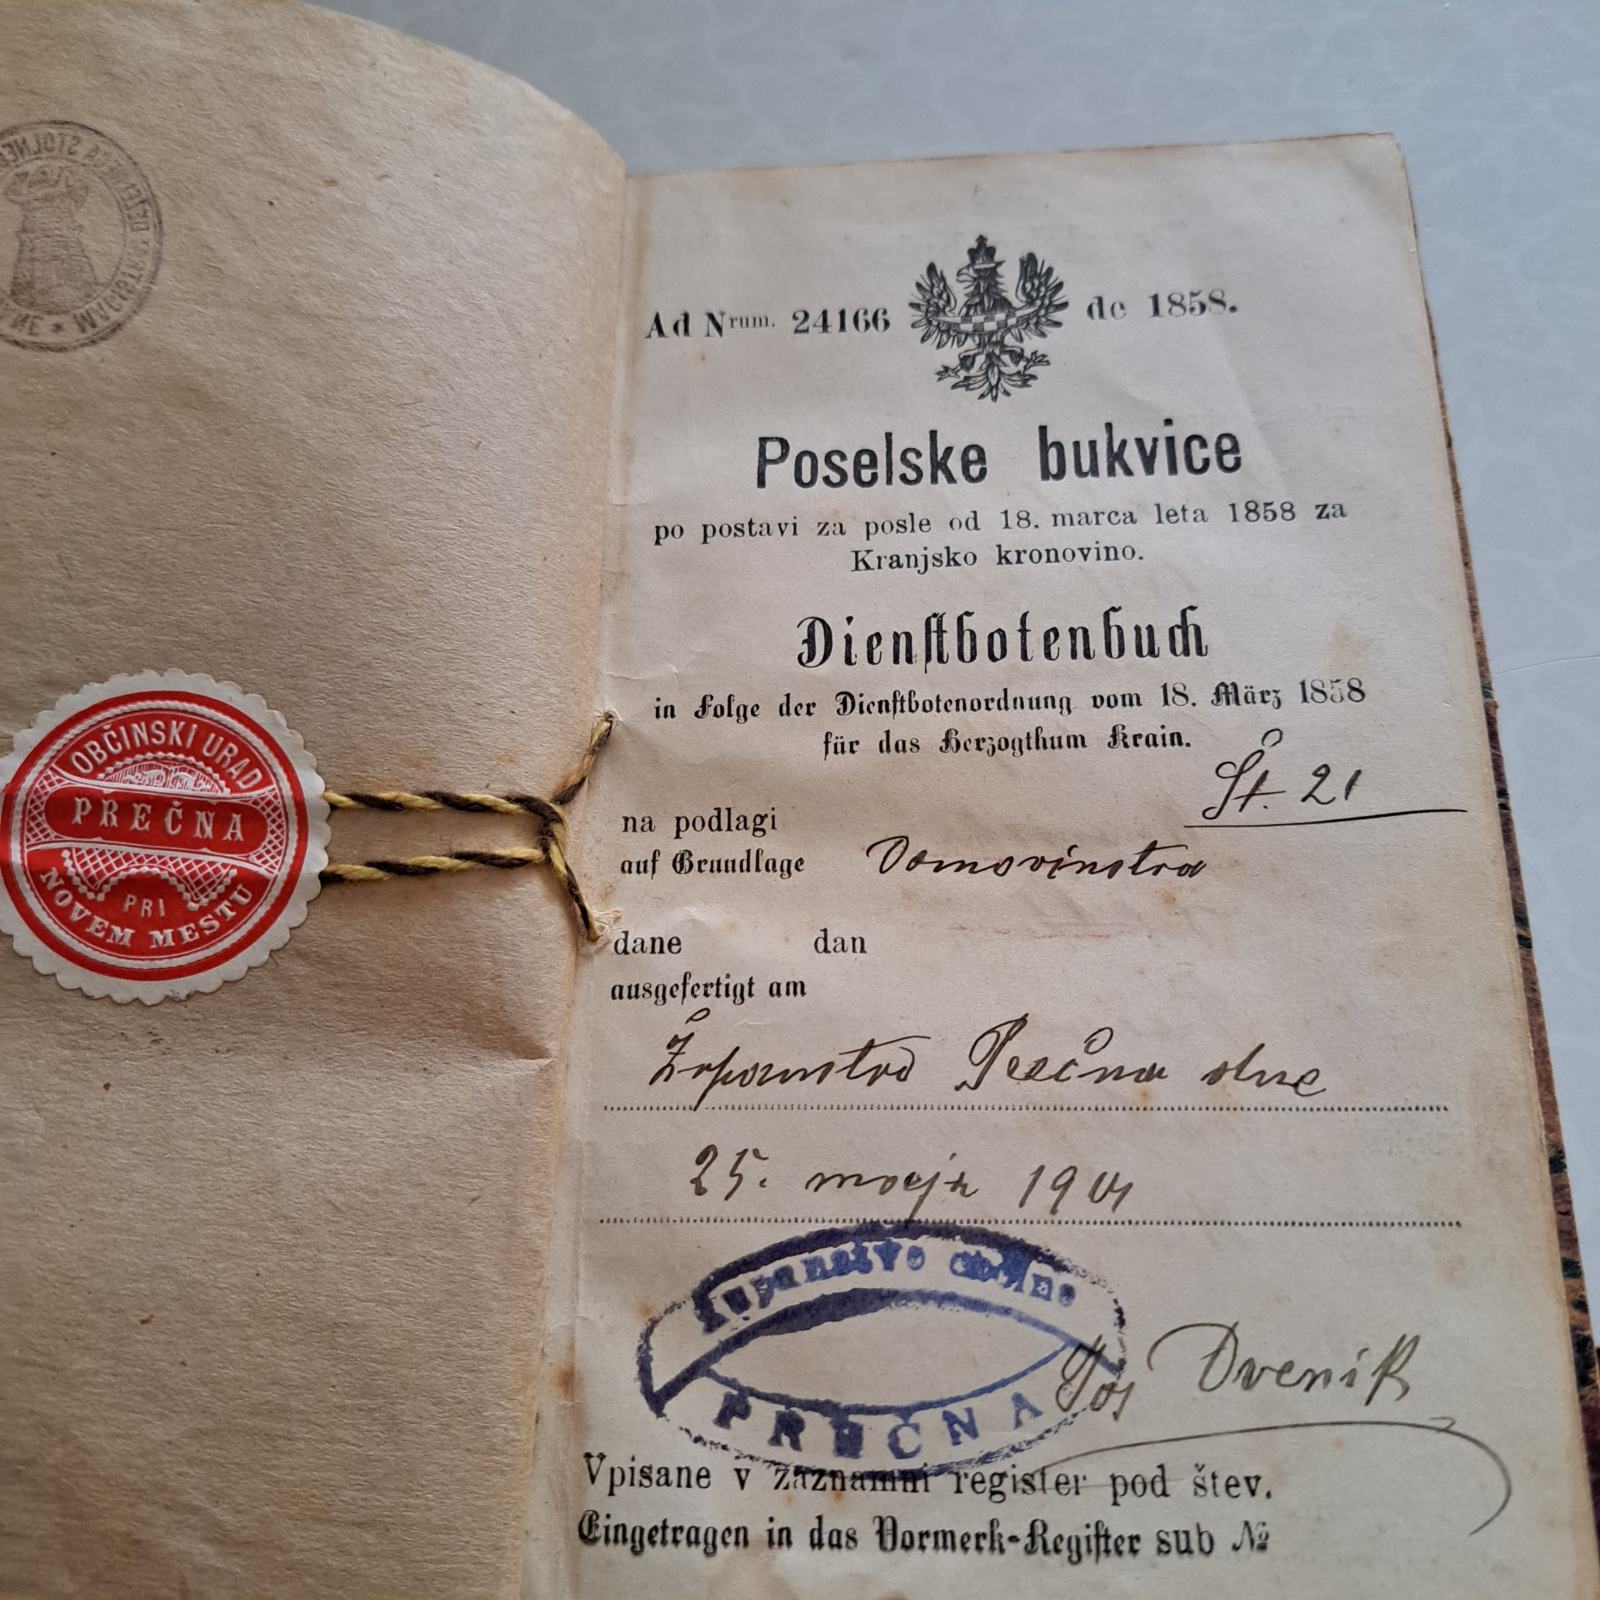 OBČINSKI URAD
PREČNA
PRI
NOVEM MESTU
Ad Nrum. 24166 de 1858.
Poselske bukvice
po postavi za posle od 18. marca leta 1858 za
Kranjsko kronovino.
Dienstbotenbuch
in Folge der Dienstbotenordnung vom 18. März 1858
für das Herzogthum Krain.
Št. 21
na podlagi
auf Grundlage Domovinstva
dane dan
ausgefertigt am
Županstvo Prečna dne
25. maja 1901
Županstvo občine
PREČNA
Jos
Vpisane v zaznamni register pod štev.
Eingetragen in das Vormerk-Register sub №